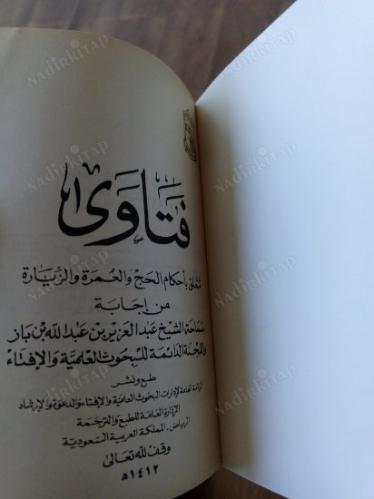 فتاوى
تتعلق بأحكام الحج والعمرة والزيارة
من إجابة
سماحة الشيخ عبد العزيز بن عبد الله بن باز
واللجنة الدائمة للبحوث العلمية والإفتاء
طبع ونشر
الرئاسة العامة لإدارات البحوث العلمية والإفتاء والدعوة والإرشاد
الإدارة العامة للطبع والترجمة
الرياض - المملكة العربية السعودية
وقف لله تعالى
١٤١٢ھ
NadirKitap